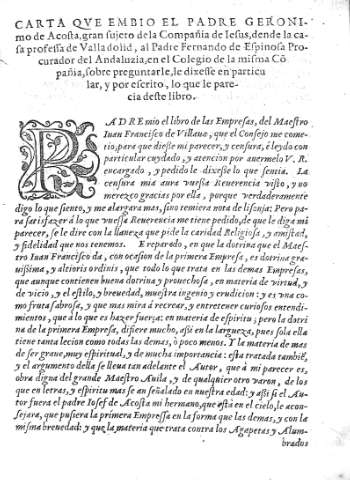 CARTA QVE EMBIO EL PADRE GERONI-
mo de Acosta, gran sujeto de la Compañia de Iesus, dende la ca
sa professa de Valladolid, al Padre Fernando de Espinosa Pro-
curador del Andaluzia, en el Colegio de la misma Cō
pañia, sobre preguntarle, le dixesse en particu
lar, y por escrito, lo que le pare-
cia deste libro.
PADRE mio el libro de las Empresas, del Maestro
Iuan Francisco de Villaua, que el Consejo me come-
tio, para que diesse mi parecer, y censura, è leydo con
particular cuydado, y atencion por auermelo V. R.
encargado, y pedido le dixesse lo que sentia. La
censura mia aura vuessa Reuerencia visto, y no
merezco gracias por ella, porque verdaderamente
digo lo que siento, y me alargara mas, sino temiera nota de lisonja: Pero pa-
ra satisfazer à lo que vuessa Reuerencia me tiene pedido, de que le diga mi
parecer, se le dire con la llaneza que pide la caridad Religiosa, y amistad,
y fidelidad que nos tenemos. E reparado, en que la dotrina que el Maes-
tro Iuan Francisco da, con ocasion de la primera Empresa, es dotrina gra-
uissima, y altioris ordinis, que todo lo que trata en las demas Empresas,
que aunque contienen buena dotrina y prouechosa, en materia de virtud, y
de vicio, y el estilo, y breuedad, muestra ingenio y erudicion: y es vna co
mo fruta sabrosa, y que mas mira à recrear, y entretener curiosos entendi-
mientos, que à lo que es hazer fuerça: en materia de espiritu; pero la dotri
na de la primera Empresa, difiere mucho, assi en la largueza, pues sola ella
tiene tanta lecion como todas las demas, ò poco menos. Y la materia de mas
de ser graue, muy espiritual, y de mucha importancia: esta tratada tambiē,
y el argumento della se lleua tan adelante el Autor, que à mi parecer es,
obra digna del grande Maestro Auila, y de qualquier otro varon, de los
que en letras, y espiritu mas se an señalado en nuestra edad: y assi si el Au-
tor fuera el padre Iosef de Acosta mi hermano, que està en el cielo, le acon-
sejara, que pusiera la primera Empressa en la forma que las demas, y con la
misma breuedad: y que la materia que trata contra los Agapetas y Alum-
brados